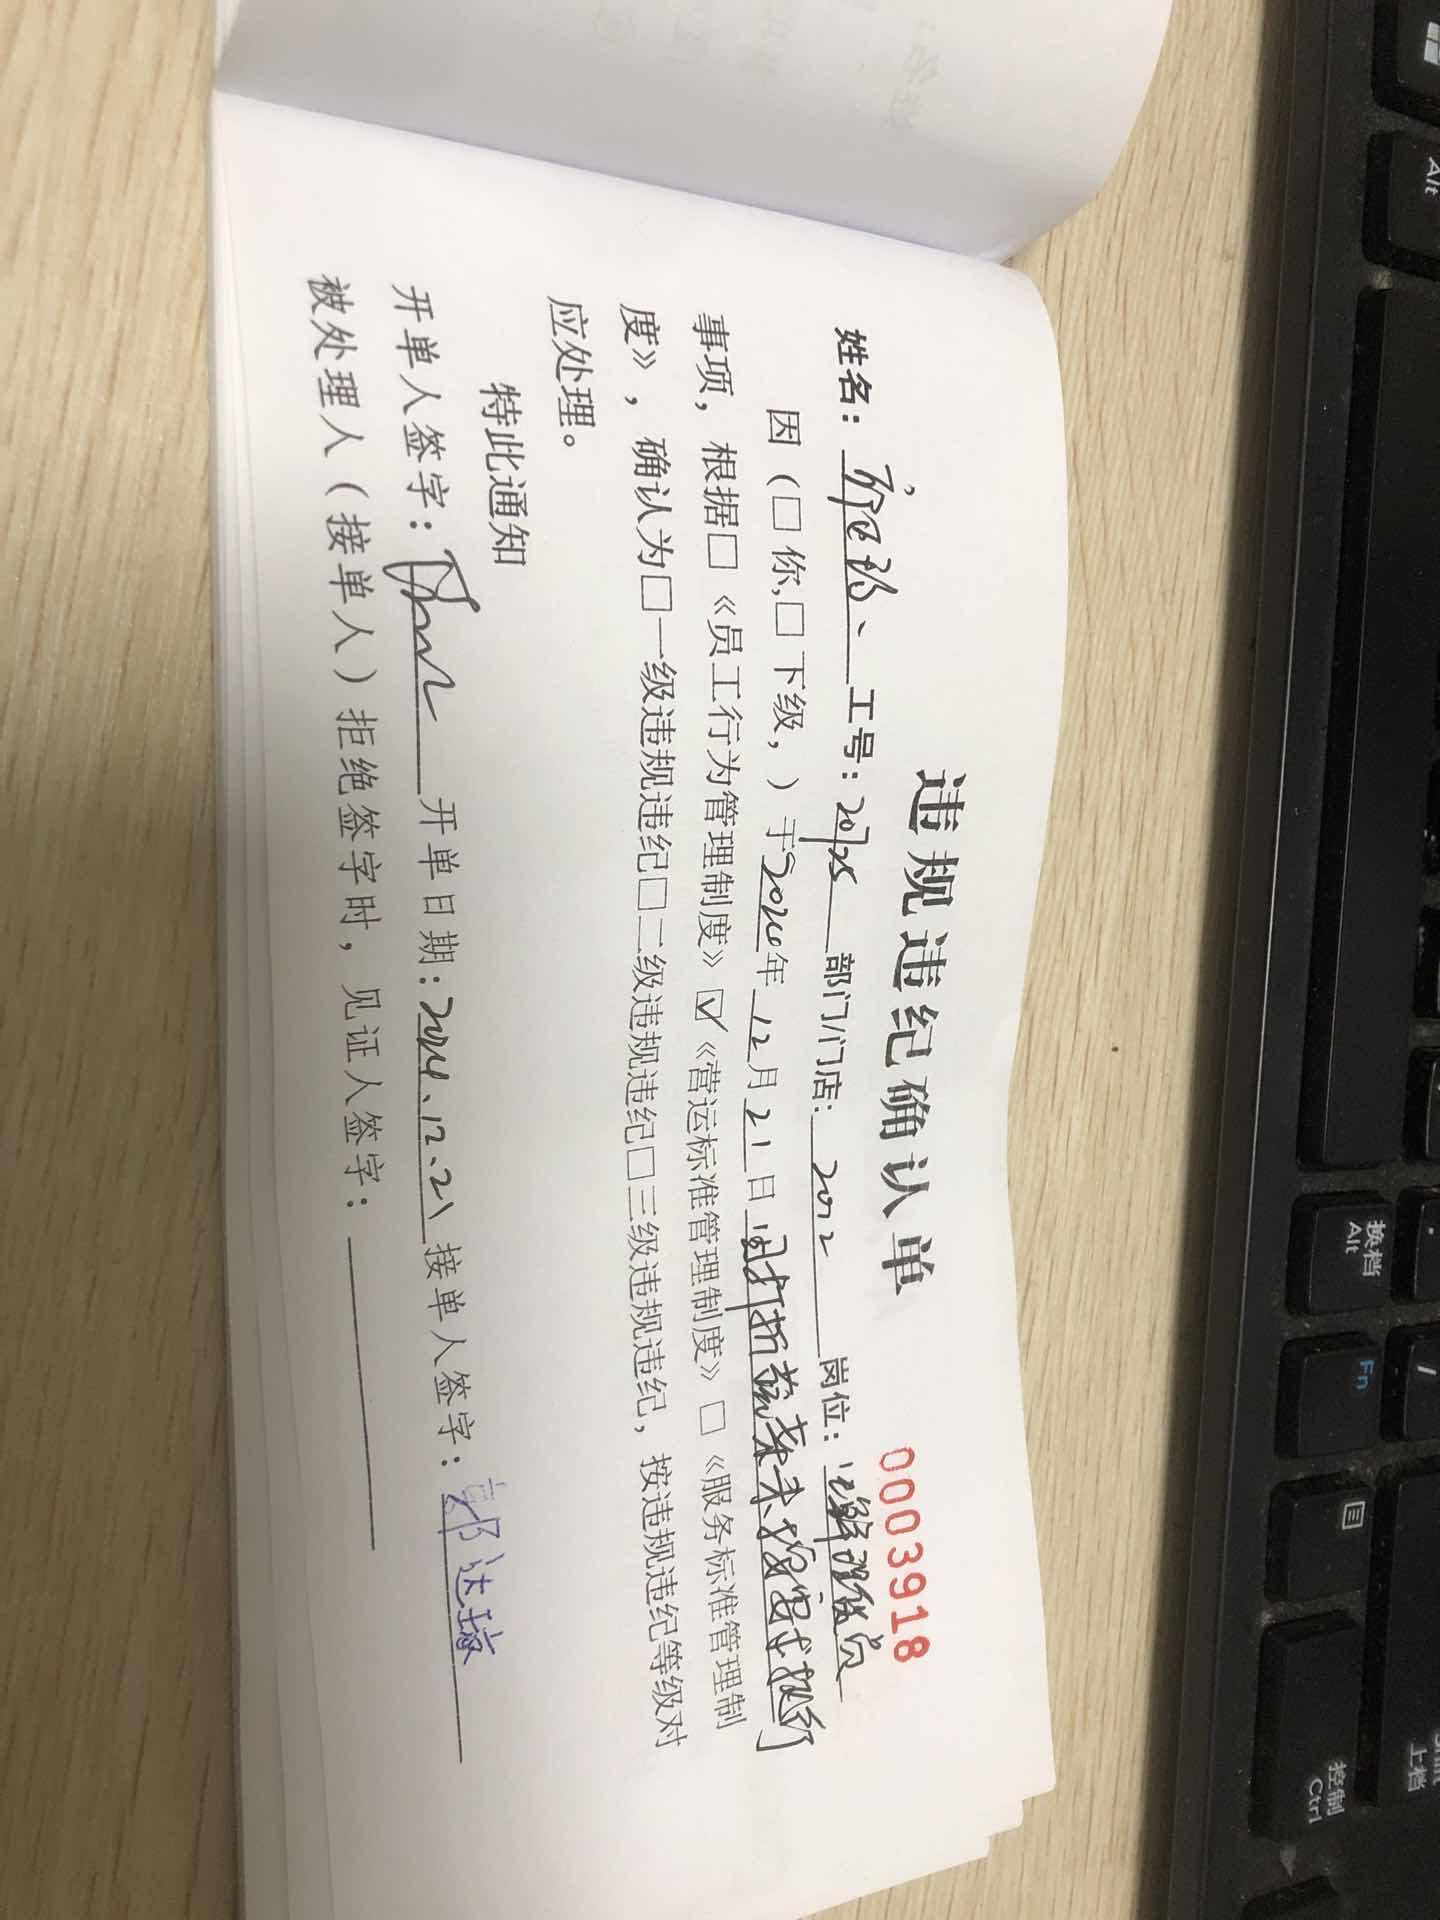 违规违纪确认单
0003918
姓名： 工号：20725 部门/门店：2022 岗位：理货员
因（□你,□下级，）于2024年12月21日
事项，根据□《员工行为管理制度》☑《营运标准管理制度》□《服务标准管理制
度》，确认为□一级违规违纪□二级违规违纪□三级违规违纪，按违规违纪等级对
应处理。
特此通知
开单人签字： 开单日期：2024.12.21 接单人签字：
被处理人（接单人）拒绝签字时，见证人签字：
Alt
换档
Alt
Fn
控制
Ctrl
上档